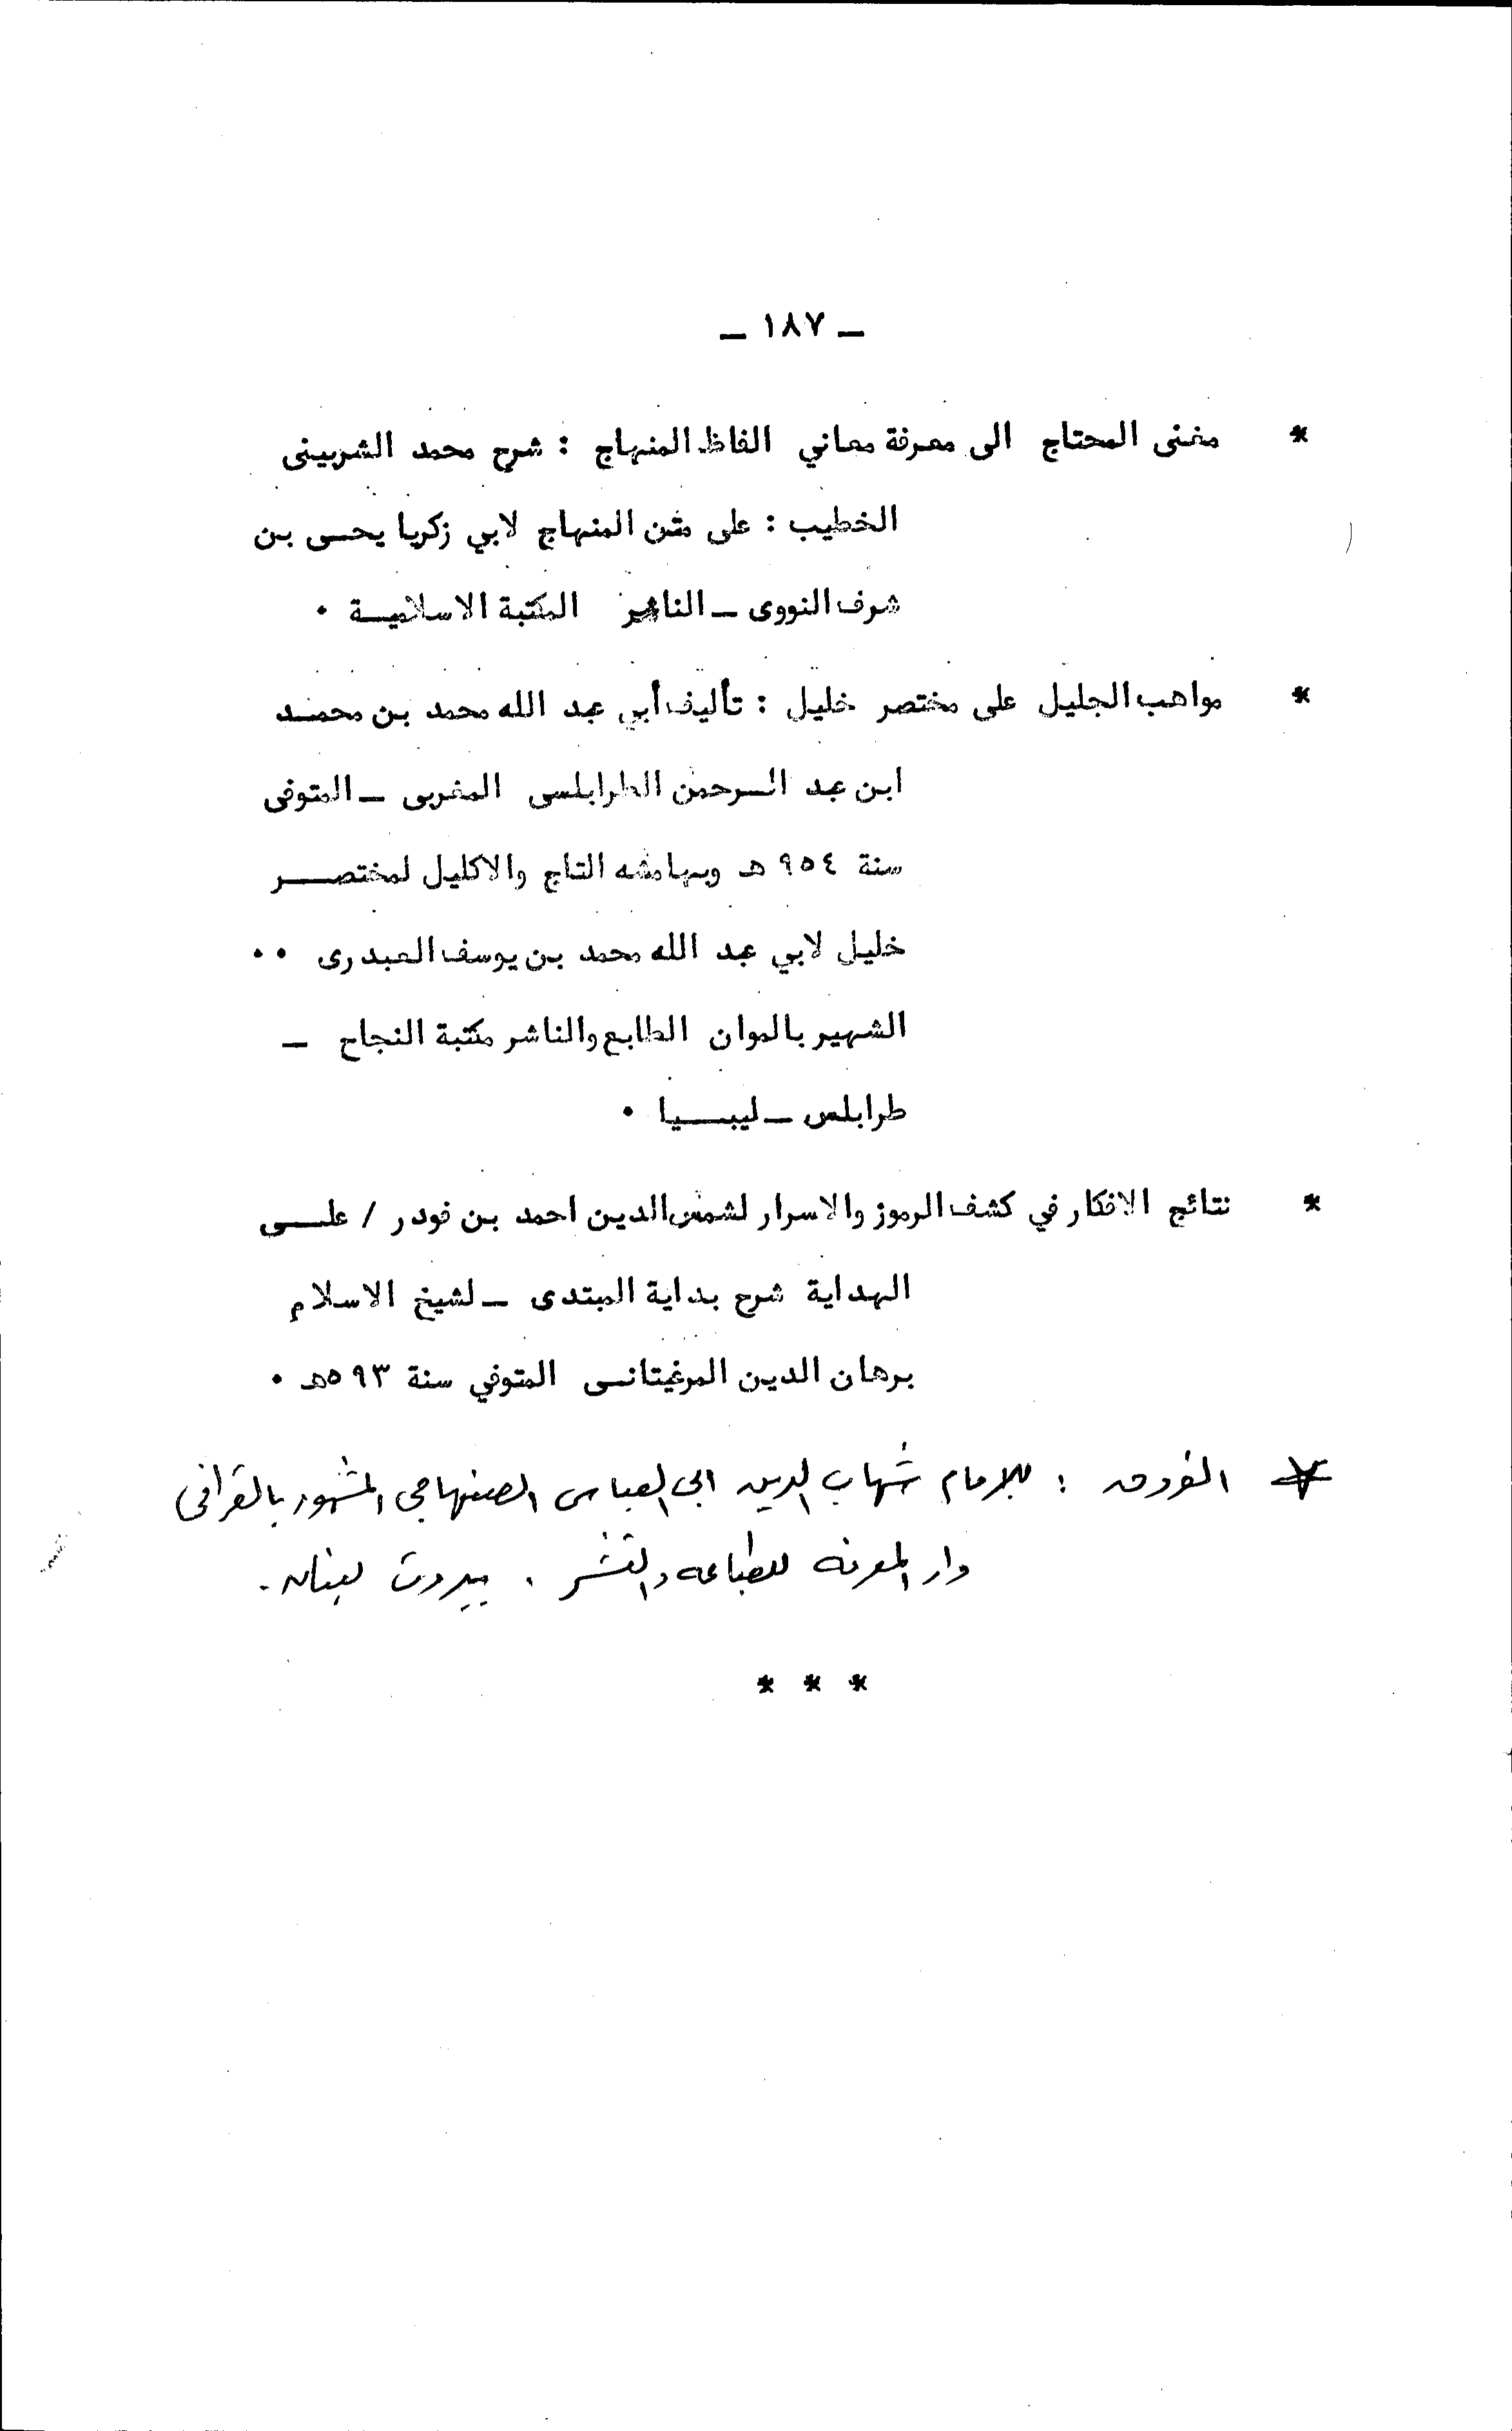 ـ ١٨٧ ـ
* مغنى المحتاج الى معرفة معاني الفاظ المنهاج : شرح محمد الشربينى
الخطيب : على متن المنهاج لابي زكريا يحسى بن
شرف النووى ـ الناشر المكتبة الاسلاميـة ٠
* مواهب الجليل على مختصر خليل : تأليف أبي عبد الله محمد بن محمـد
ابن عبد الـرحمن الطرابلسى المغربى ـ المتوفى
سنة ٩٥٤ هـ وبهامشه التاج والاكليل لمختصـــر
خليل لابي عبد الله محمد بن يوسف العبدرى ٠٠
الشهير بالموان الطابع والناشر مكتبة النجاح ـ
طرابلس ـ ليبــيا ٠
* نتائج الافكار في كشف الرموز والاسرار لشمس الدين احمد بن قودر / علــى
الهداية شرح بداية المبتدى ـ لشيخ الاسلام
برهان الدين المرغيتانسى المتوفي سنة ٥٩٣هـ ٠
* الفروق : للامام شهاب الدين ابى العباس الصنهاجى المشهور بالقرافى
دار المعرفه للطباعه والنشر . بيروت لبنان .
* * *